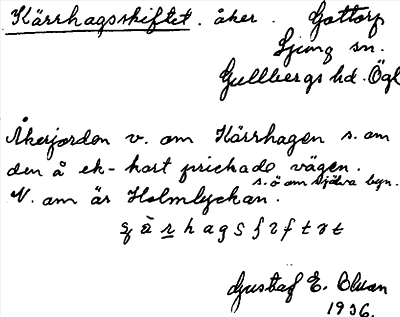 Kärrhagsskiftet. åker. Gottorp
Ljung sn.
Gullbergs hd. Ögl
Åkerjorden v. om Kärrhagen s. om
den å ek-kart prickade vägen.
s. ö om själva byn.
N. om är Holmlyckan.
Gustaf E. Olson
1936.